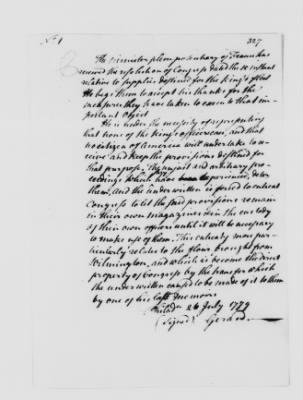 No. 1
327
The minister plenipotentiary of France has
received the resolution of Congress dated the 10 instant
relative to supplies destined for the King's fleet
He begs them to accept his thanks for the
measures they have taken to come to that im-
portant object
He is under the necessity of representing
that none of the King's officers, and that
no citizen of America will undertake to re-
ceive and keep the provisions destined for
that purpose. The unjust and arbitrary pro-
ceedings which have been experienced, deter
them, and the underwritten is forced to entreat
Congress to let the said provisions remain
in their own magazines & in the custody
of their own officers until it will be necessary
to make use of them. This entreaty more par-
ticularly relates to the flour brought from
Wilmington, and which is become the direct
property of Congress by the transfer which
the underwritten caused to be made of it to them
by one of his last memoirs
Philada 26 July 1779
(signed) Gerard